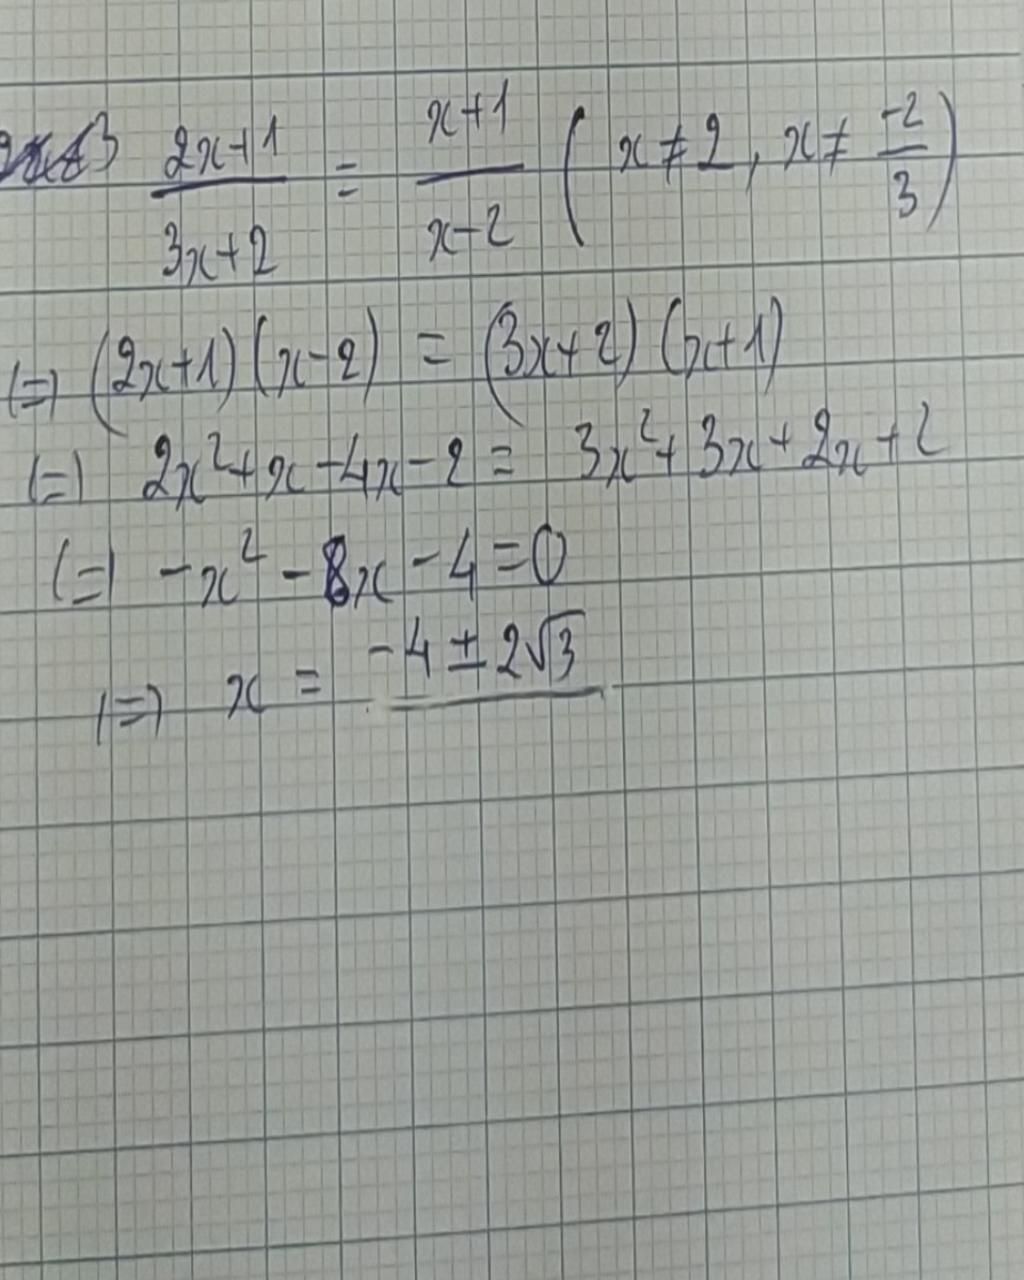 (2x+1)/(3x+2) = (x+1)/(x-2) ( x ≠ 2, x ≠ -2/3 )
(=) (2x+1)(x-2) = (3x+2)(x+1)
(=) 2x²+x-4x-2 = 3x²+3x+2x+2
(=) -x²-8x-4=0
(=) x = -4±2√3